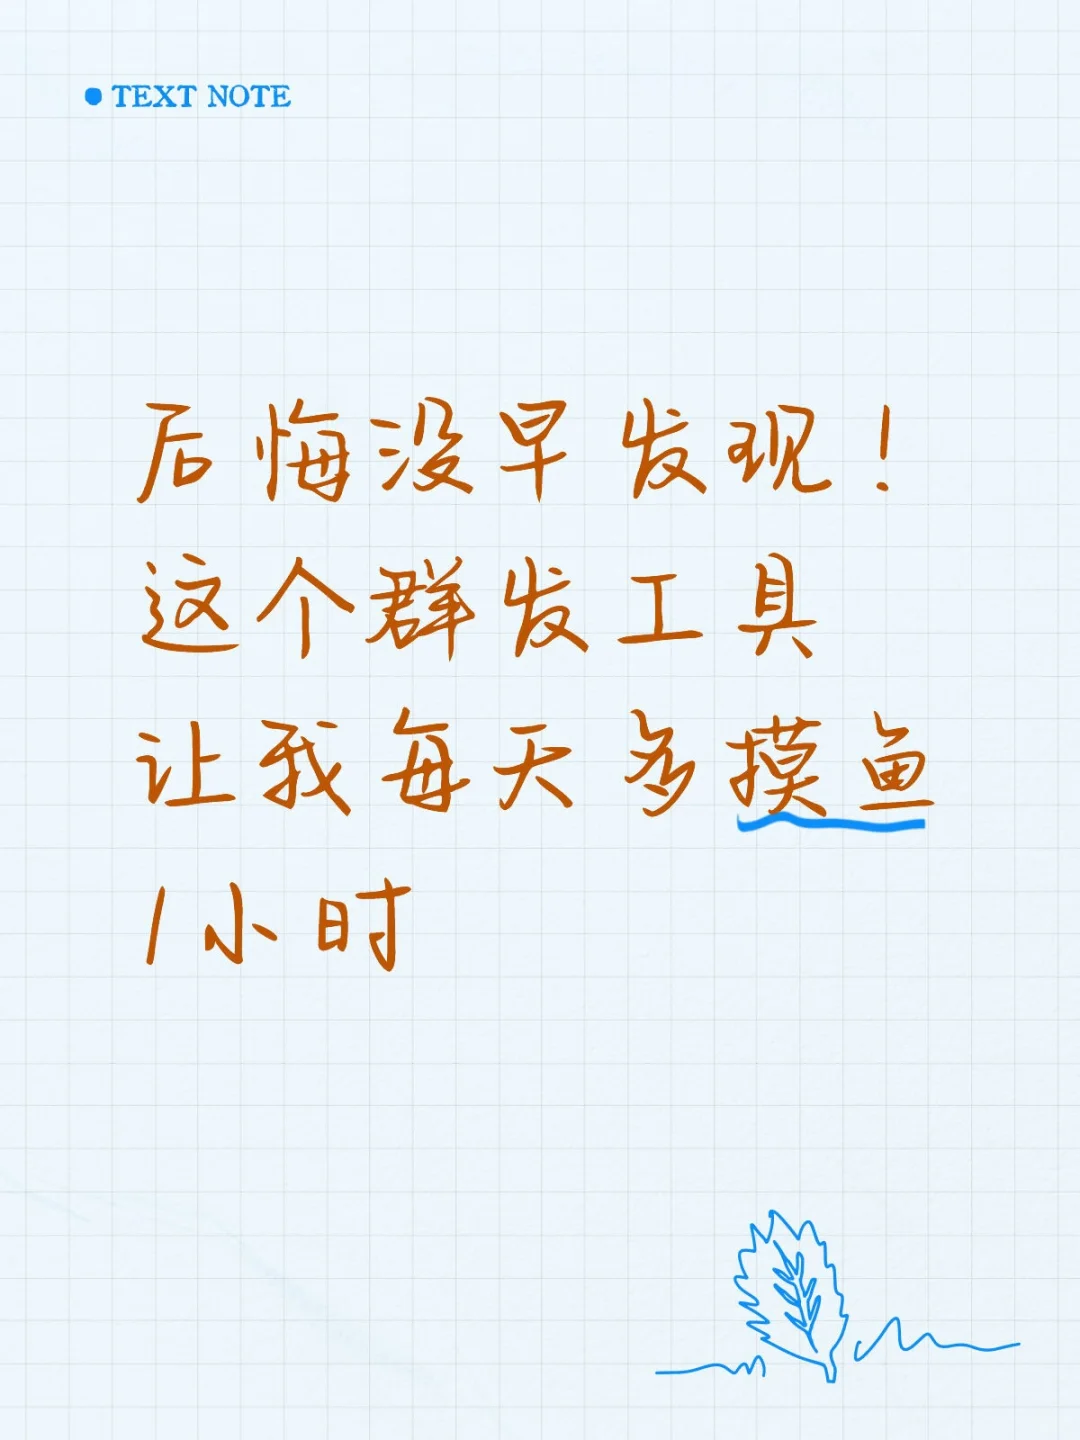 TEXT NOTE
后悔没早发现！
这个群发工具
让我每天多摸鱼
1小时